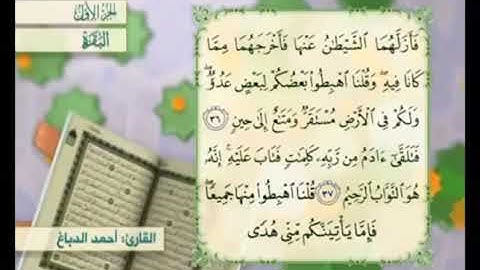 الجزء الأول
البقرة
فَأَزَلَّهُمَا الشَّيْطَٰنُ عَنْهَا فَأَخْرَجَهُمَا مِمَّا
كَانَا فِيهِ ۖ وَقُلْنَا ٱهْبِطُوا۟ بَعْضُكُمْ لِبَعْضٍ عَدُوٌّ ۖ
وَلَكُمْ فِى ٱلْأَرْضِ مُسْتَقَرٌّ وَمَتَٰعٌ إِلَىٰ حِينٍ ٣٦
فَتَلَقَّىٰٓ ءَادَمُ مِن رَّبِّهِۦ كَلِمَٰتٍ فَتَابَ عَلَيْهِ ۚ إِنَّهُۥ
هُوَ ٱلتَّوَّابُ ٱلرَّحِيمُ ٣٧ قُلْنَا ٱهْبِطُوا۟ مِنْهَا جَمِيعًا ۖ
فَإِمَّا يَأْتِيَنَّكُم مِّنِّى هُدًى
القارئ: أحمد الدباغ